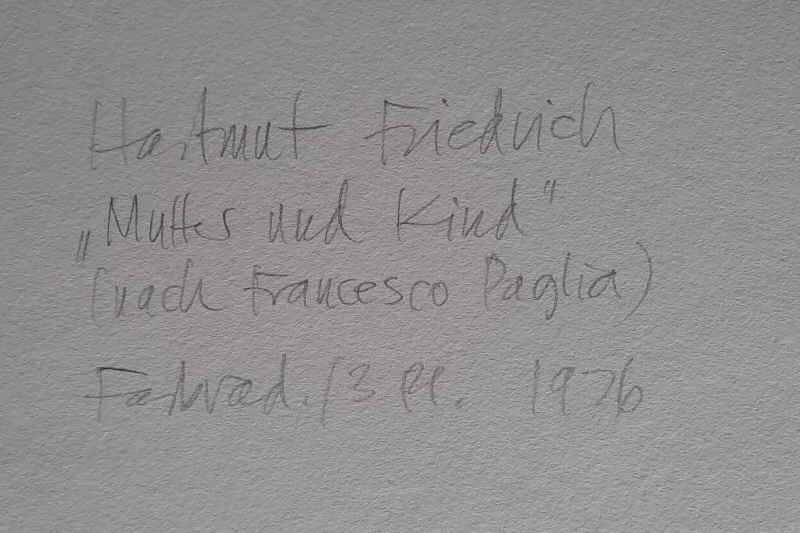 Hartmut Friedrich
„Mutter und Kind"
(nach Francesco Paglia)
Farbrad./3 Pl. 1976